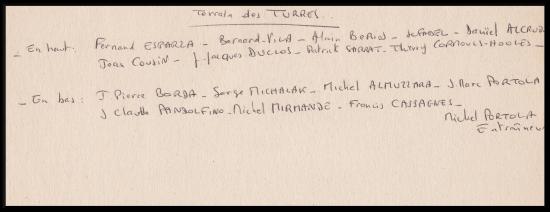 Terrain des TURRES.
- En haut: Fernand ESPARZA - Bernard-VILA - Alain - Daniel ALCRUZ
Jean Cousin - J-Jacques DUCLOS - Patrick SARRAT - Thierry CORMOULS-HOULES -
- En bas: J. Pierre BORDA - Serge MICHALAK - Michel ALMUZZARA - J. Marc PORTOLA
J Claude PANDOLFINO - Michel MIRMANDE - Francis CASSAGNES -
Michel PORTOLA
Entraîneur